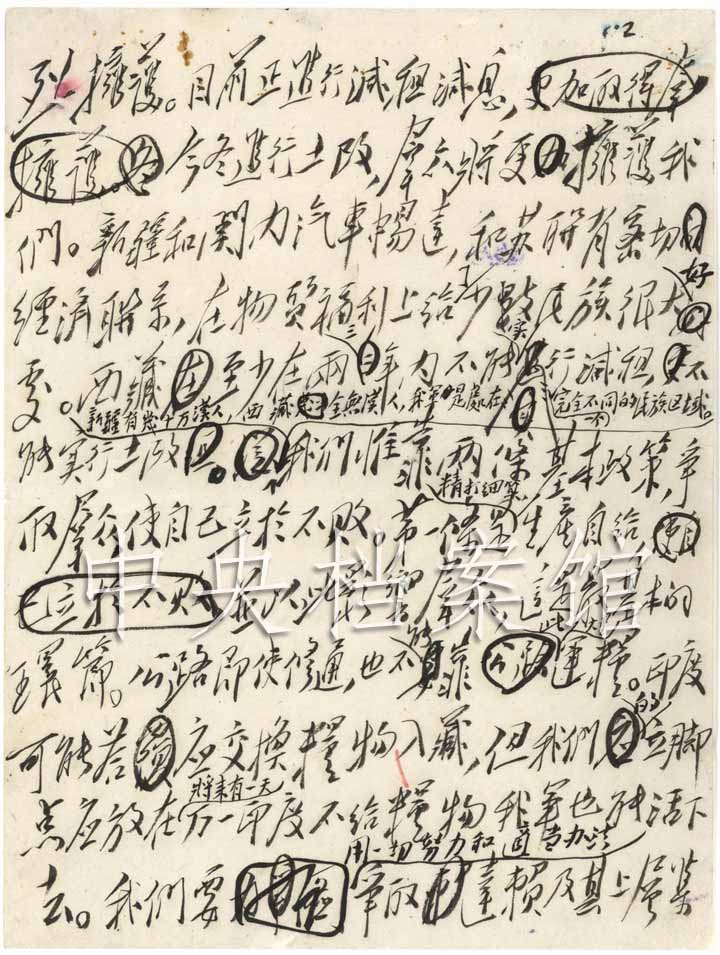 2
烈擁護。目前正進行減租減息,更加取得羣
擁護。今冬進行土改,羣众將更擁護我
們。新疆和関内汽車暢達,和苏联有密切
經済联系,在物質福利上給了少数民族很大好
處。西藏至少在兩三年内不能实行減租,不
新疆有幾十万漢人,西藏幾乎全無漢人,我軍是處在一个完全不同的民族区域。
能实行土改。我們惟靠兩條基本政策,争
取羣众,使自己立於不敗。第一條是精打細算,生産自給
立於不敗,並以此影響羣众,這是最基本的
環節。公路即使修通,也不能靠此大量運糧。印度
可能答應交換糧物入藏,但我們的立脚
点應放在將来有一天万一印度不給糧物我軍也能活下
去。我們要用一切努力和適当办法争取達賴及其上層集
中央档案馆